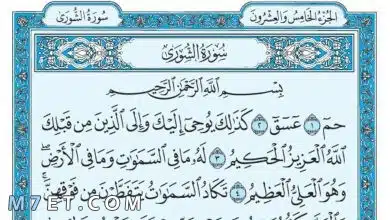 الجزء الخامس والعشرون
سورة الشورى
سُورَةُ الشُّورَىٰ
بِسْمِ ٱللَّهِ ٱلرَّحْمَٰنِ ٱلرَّحِيمِ
حمٓ ١ عٓسٓقٓ ٢ كَذَٰلِكَ يُوحِىٓ إِلَيْكَ وَإِلَى ٱلَّذِينَ مِن قَبْلِكَ
ٱللَّهُ ٱلْعَزِيزُ ٱلْحَكِيمُ ٣ لَهُۥ مَا فِى ٱلسَّمَٰوَٰتِ وَمَا فِى ٱلْأَرْضِ ۖ
وَهُوَ ٱلْعَلِىُّ ٱلْعَظِيمُ ٤ تَكَادُ ٱلسَّمَٰوَٰتُ يَتَفَطَّرْنَ مِن فَوْقِهِنَّ ۚ
M7ET.COM